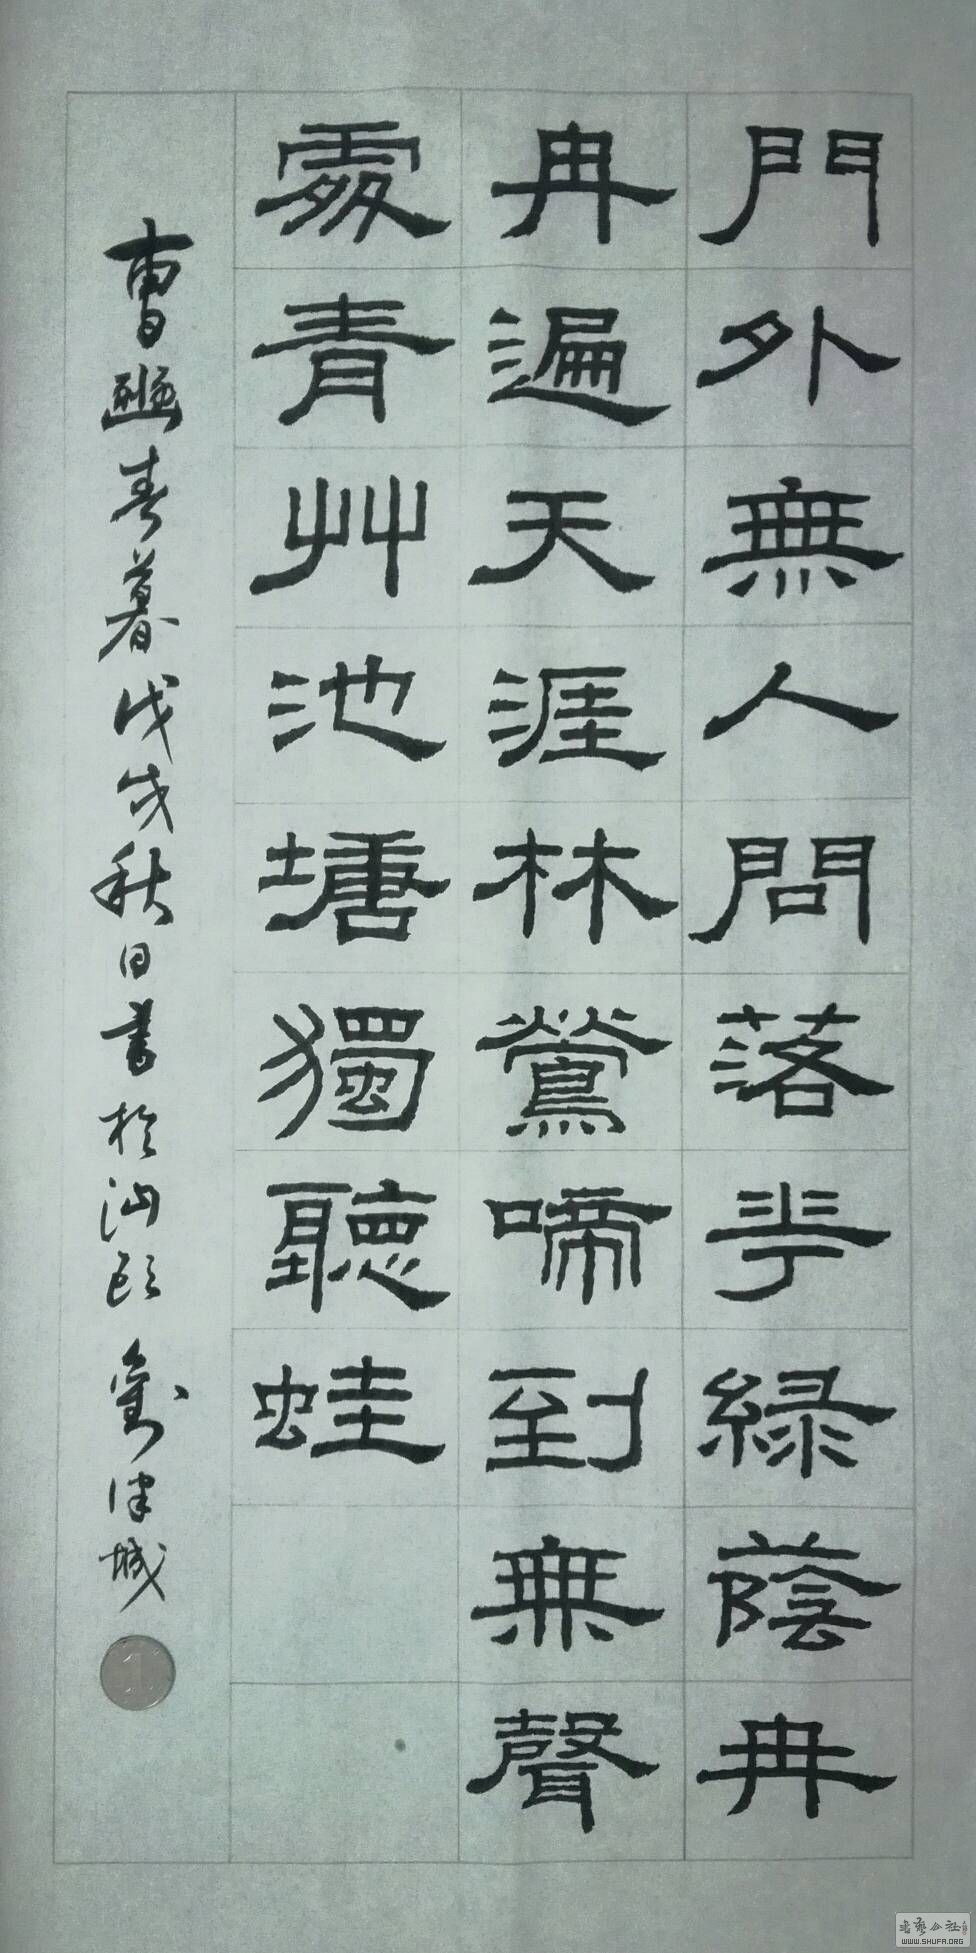 門外無人問落花綠蔭冉
冉遍天涯林鶯啼到無聲
處青艸池塘獨聽蛙
曹豳春暮戊戌秋日書於汕頭劉津城
1
书艺公社
WWW.SHUFA.ORG